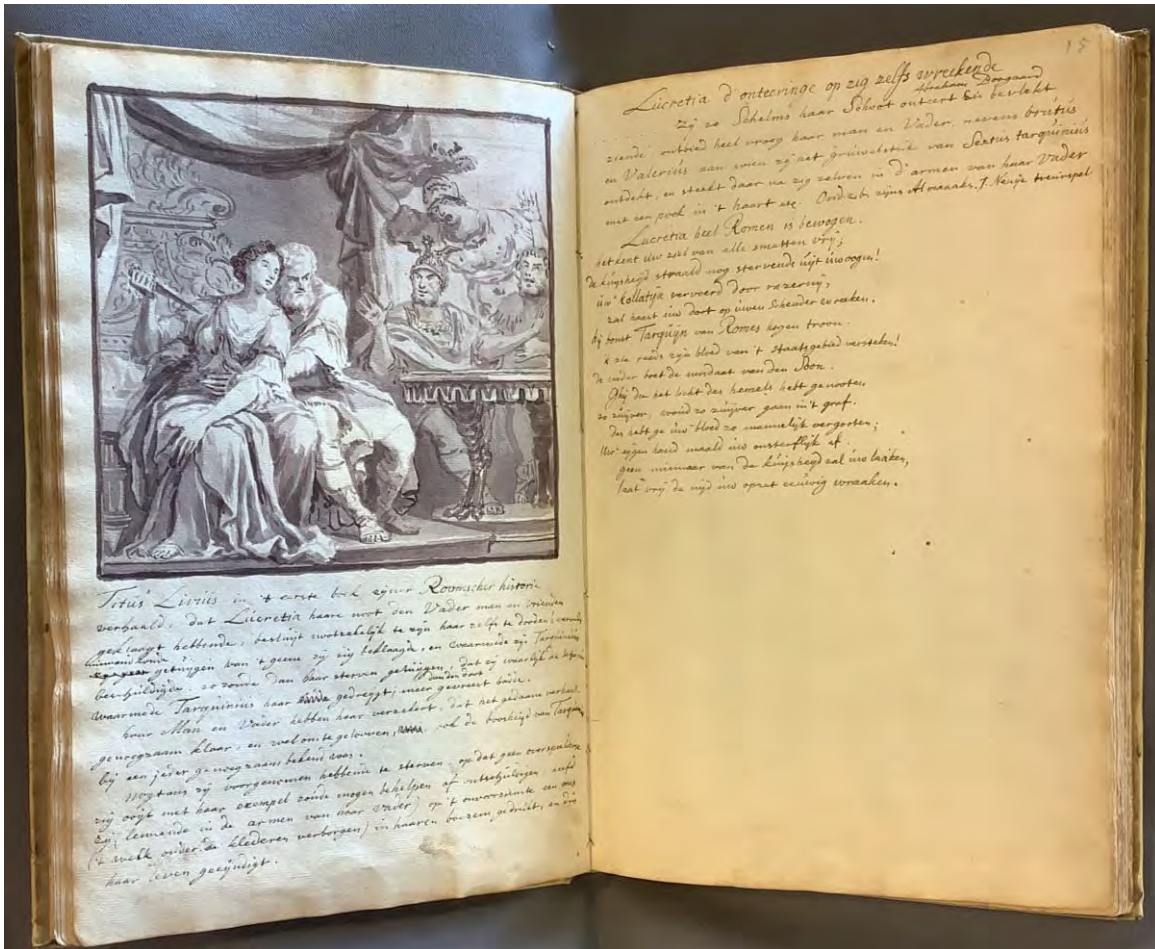 Titus Livius in 't eerste boek zijner Roomscher historie
verhaald, dat Lucretia haare noot den Vader man en vrienden
geklaagt hebbende, besluijt nootzakelijk te zijn haar zelfs te dooden,
getuijgen van 't geene zij zig beklaagde, en waarmede zij Tarquinius
beschuldigde, zo zoude dan haar sterven getuijgen, dat zij waarlijk de
waarmede Tarquinius haar gedreijgt, meer gevreest hadde.
haar Man en Vader hebben haar verzekert, dat het gedaane verhaal
genoegzaam klaar, en wel om te gelooven, ook de boosheijd van Tarquin
bij een jeder genoegzaam bekend was.
nogtans zij voorgenomen hebbende te sterven, op dat geen overspeelster
zig ooijt met haar exempel zoude mogen behelpen of ontschuldigen, heeft
zij, leunende in de armen van haar Vader, op 't onvoorzienste een mes
('t welk onder de klederen verborgen) in haaren boezem gedrukt, en zo
haar leven geeijndigt.
15
Lucretia d'onteeringe op zig zelfs wreekende
Abraham Boogaard
Zij zo Schelms haar Schoot onteert en bevlekt
ziende ontbied heel vroeg haar man en Vader, nevens brutus
en Valerius aan wien zij het gruwelstuk van Sextus tarquinius
ontdekt, en steekt daar na zig zelven in d'armen van haar Vader
met een pook in 't haart etc. Ovid. J. Neuije treurspel
Lucretia heel Romen is bewogen.
het kent uw ziel van alle smetten vrij;
de kuijsheyd straald nog stervende uijt uw oogen!
uw Kollatijn vervoerd door razernij,
zal haast uw doot op uwen Schender wreeken.
hij bomt Tarquijn van Romes hogen troon.
'k zie reeds zijn bloed van 't staatsgebied versteken!
de vader boet de misdaat van den Soon.
Ghij die het licht des hemels hebt genooten
zo zuijver, woud zo zuijver gaan in 't graf.
des hebt ge uw bloed zo mannelijk vergooten;
Uw' eijgen hand maald uw onsterflijk af.
geen minnaar van de kuijsheyd zal uw laaken,
laat vrij de nijd uw opzet eeuwig wraaken.